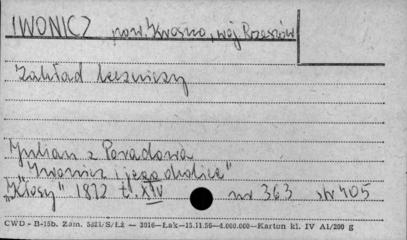 IWONICZ pow. Krosno, woj Rzeszów
Zakład leczniczy
Julian z Poradowa
"Iwonicz i jego okolice"
"Kłosy" 1872 t. XIV nr 363 str 405
CWD - B-15b. Zam. 5821/S/Łż — 3016—Łak—15.11.56—4.000.000—Karton kl. IV A1/200 g